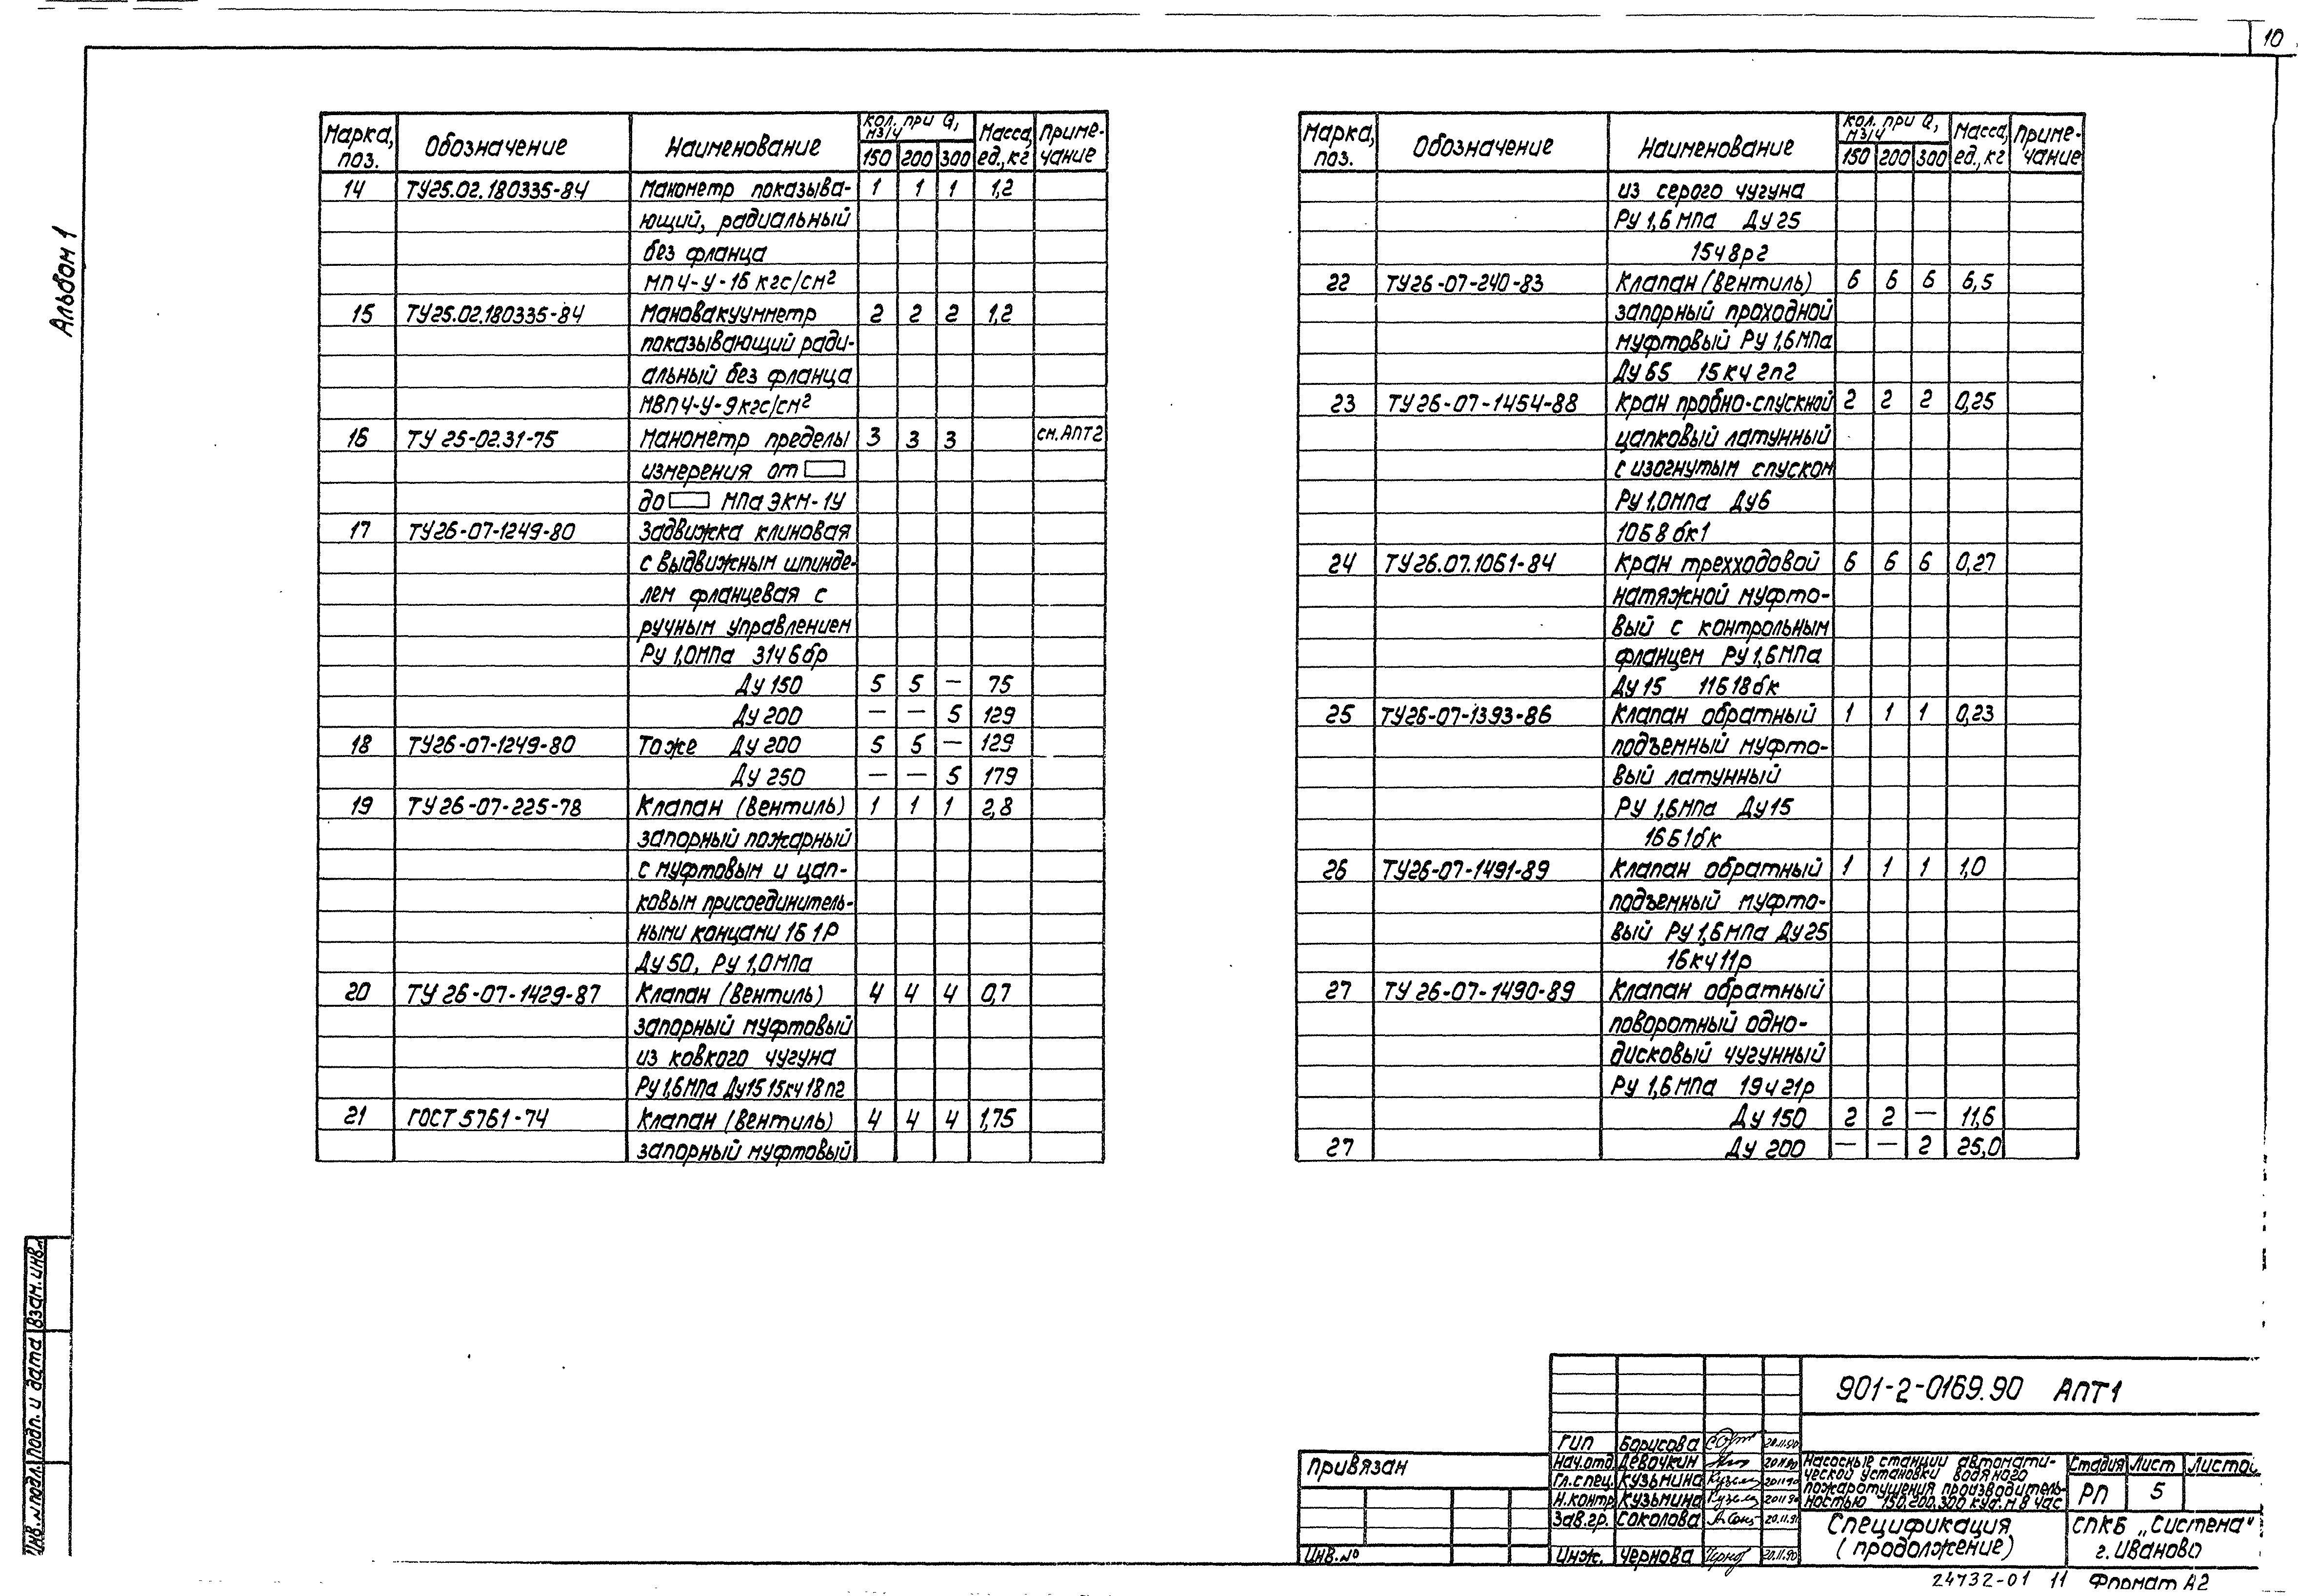 10
Альбом 1
Марка, поз. Обозначение Наименование Кол. при Q, м3/ч 150 200 300 Масса, ед., кг Приме-чание
14 ТУ25.02.180335-84 Манометр показыва- 1 1 1 1,2
ющий, радиальный
без фланца
МП4-У-16 кгс/см²
15 ТУ25.02.180335-84 Мановакуумметр 2 2 2 1,2
показывающий ради-
альный без фланца
МВП4-У-9кгс/см²
16 ТУ 25-02.31-75 Манометр пределы 3 3 3 см. АПТ2
измерения от
до МПа ЭКМ-1У
17 ТУ26-07-1249-80 Задвижка клиновая
с выдвижным шпинде-
лем фланцевая с
ручным управлением
Ру 1,0МПа 31ч6бр
Ду 150 5 5 — 75
Ду 200 — — 5 129
18 ТУ26-07-1249-80 То же Ду 200 5 5 — 129
Ду 250 — — 5 179
19 ТУ 26-07-225-78 Клапан (вентиль) 1 1 1 2,8
запорный пожарный
с муфтовым и цап-
ковым присоединитель-
ными концами 1Б1Р
Ду 50, Ру 1,0МПа
20 ТУ 26-07-1429-87 Клапан (вентиль) 4 4 4 0,7
запорный муфтовый
из ковкого чугуна
Ру 1,6МПа Ду15 15кч18п2
21 ГОСТ 5761-74 Клапан (вентиль) 4 4 4 1,75
запорный муфтовый
Марка, поз. Обозначение Наименование Кол. при Q, м3/ч 150 200 300 Масса, ед., кг Приме-чание
из серого чугуна
Ру 1,6 МПа Ду 25
15ч8р2
22 ТУ26-07-240-83 Клапан (вентиль) 6 6 6 6,5
запорный проходной
муфтовый Ру 1,6МПа
Ду 65 15кч2п2
23 ТУ26-07-1454-88 Кран пробно-спускной 2 2 2 0,25
цапковый латунный
с изогнутым спуском
Ру 1,0МПа Ду6
10Б8бк1
24 ТУ26.07.1061-84 Кран трехходовой 6 6 6 0,27
натяжной муфто-
вый с контрольным
фланцем Ру 1,6МПа
Ду 15 11Б18бк
25 ТУ26-07-1393-86 Клапан обратный 1 1 1 0,23
подъемный муфто-
вый латунный
Ру 1,6МПа Ду 15
16Б1бк
26 ТУ26-07-1491-89 Клапан обратный 1 1 1 1,0
подъемный муфто-
вый Ру 1,6МПа Ду25
16кч11р
27 ТУ 26-07-1490-89 Клапан обратный
поворотный одно-
дисковый чугунный
Ру 1,6МПа 19ч21р
Ду 150 2 2 — 11,6
27 Ду 200 — — 2 25,0
Инв. № подл. Подп. и дата Взам. инв. №
901-2-0169.90 АПТ1
Привязан
Инв. №
ГИП Борисова 20.11.90
Нач.отд. Девочкин 20.11.90
Гл.спец. Кузьмина 20.11.90
Н.контр. Кузьмина 20.11.90
Зав.гр. Соколова
Инж. Чернова 20.11.90
Насосные станции автомати-
ческой установки водяного
пожаротушения производитель-
ностью 150, 200, 300 куб. м в час
Стадия Лист Листов
РП 5
Спецификация
(продолжение)
СПКБ „Система“
г. Иваново
24732-01 11 Формат А2